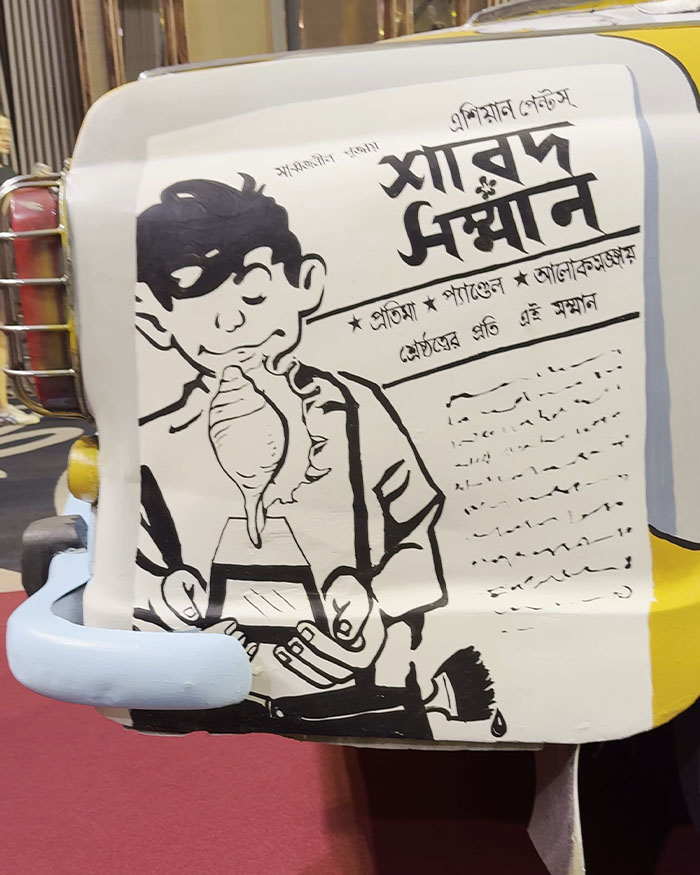 এশিয়ান পেন্টস্
সার্বজনীন পূজায়
শারদ
সম্মান
★ প্রতিমা ★ প্যান্ডেল ★ আলোকসজ্জায়
শ্রেষ্ঠত্বের প্রতি এই সম্মান